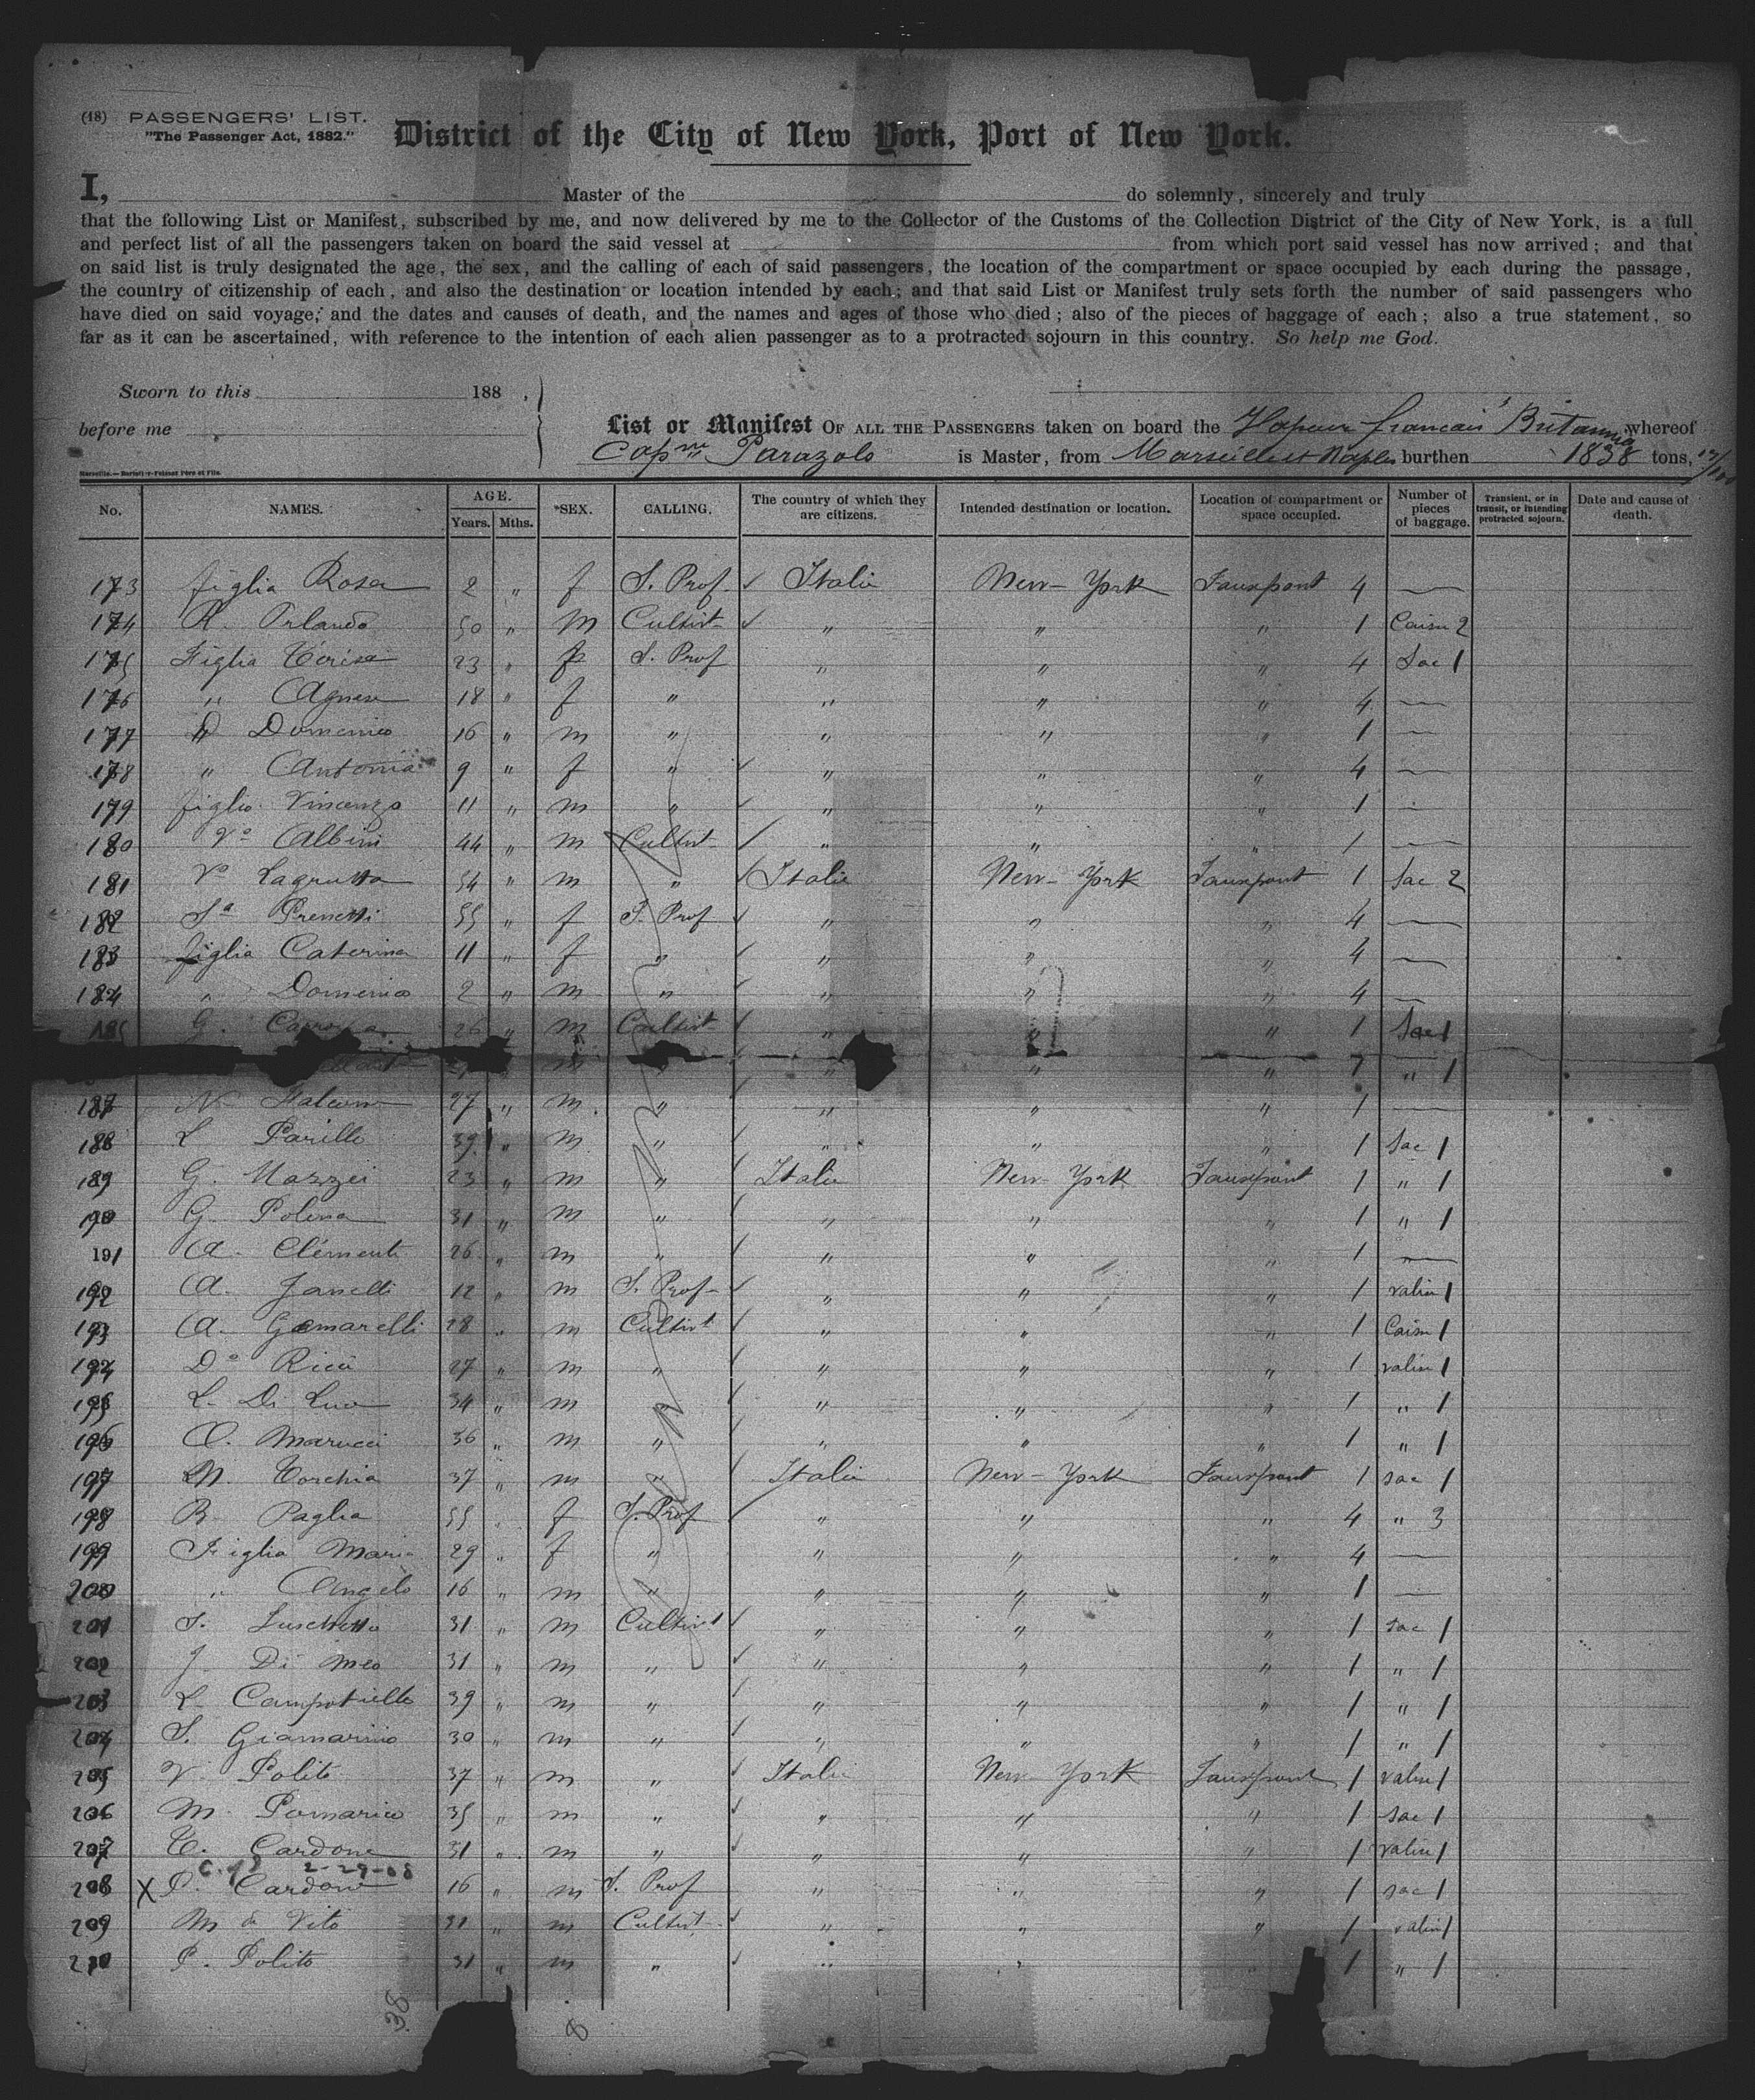 (18) PASSENGERS' LIST.
"The Passenger Act, 1882."
District of the City of New York, Port of New York.
I, Master of the do solemnly, sincerely and truly
that the following List or Manifest, subscribed by me, and now delivered by me to the Collector of the Customs of the Collection District of the City of New York, is a full
and perfect list of all the passengers taken on board the said vessel at from which port said vessel has now arrived; and that
on said list is truly designated the age, the sex, and the calling of each of said passengers, the location of the compartment or space occupied by each during the passage,
the country of citizenship of each, and also the destination or location intended by each; and that said List or Manifest truly sets forth the number of said passengers who
have died on said voyage, and the dates and causes of death, and the names and ages of those who died; also of the pieces of baggage of each; also a true statement, so
far as it can be ascertained, with reference to the intention of each alien passenger as to a protracted sojourn in this country. So help me God.
Sworn to this 188 ,
before me
List or Manifest OF ALL THE PASSENGERS taken on board the Vapeur français Britannia whereof
Capne Parazolo is Master, from Marseille et Naples burthen 1838 tons,
No. NAMES. AGE. Years. Mths. SEX. CALLING. The country of which they are citizens. Intended destination or location. Location of compartment or space occupied. Number of pieces of baggage. Transient, or in transit, or intending protracted sojourn. Date and cause of death.
173 figlia Rosa 2 " f S. Prof Italie New-York Fauxpont 4 —
174 R. Orlando 50 " M Cultivt " " " 1 Caisn 2
175 Figlia 23 " f S. Prof " " " 4 Sac 1
176 " Agnese 18 " f " " " " 4 —
177 " Domenico 16 " m " " " " 1 —
178 " Antonia 9 " f " " " " 4 —
179 figlio Vincenzo 11 " m " " " " 1 —
180 Vo Albini 44 " m Cultivt " " " 1 —
181 Vo Lagrutta 54 " m " Italie New-York Fauxpont 1 Sac 2
182 Sa 55 " f S. Prof " " " 4 —
183 figlia Caterina 11 " f " " " " 4 —
184 " Domenico 2 " m " " " " 4 —
G. 26 " m Cultivt " " " 1 Sac 1
m " " " " 1
187 N 27 " m " " " " 1 —
188 L Parillo 39 " m " " " " 1 Sac 1
189 G. Mazzei 23 " m " Italie New York Fauxpont 1 " 1
190 G. Polena 31 " m " " " " 1 " 1
191 A. Clementi 26 " m " " " " 1 —
192 A. Janelli 12 " m S. Prof " " " 1 valise 1
193 A. Gamarelli 28 " m Cultivt " " " 1 Caisn 1
194 Do Ricci 27 " m " " " " 1 valise 1
195 L. Di Luca 34 " m " " " " 1 " 1
196 O. Marucci 36 " m " " " " 1 " 1
197 M. Torchia 37 " m " Italie New-York Fauxpont 1 sac 1
198 R. Paglia 55 " f S. Prof " " " 4 " 3
199 Figlia Maria 29 " f " " " " 4 —
200 " Angelo 16 " m " " " " 1 —
201 S. Luschetta 31 " m Cultivt " " " 1 sac 1
202 J. Di Meo 31 " m " " " " 1 " 1
203 L Campotiello 39 " m " " " " 1 " 1
204 S. Giamarino 30 " m " " " " 1 " 1
205 V. Polito 37 " m " Italie New York Fauxpont 1 valise 1
206 M. Pomarico 35 " m " " " " 1 sac 1
207 C. Cardone 31 " m " " " " 1 valise 1
2-29-08
208 X P. Cardone 16 " m S. Prof " " " 1 sac 1
209 M de Vito 31 " m Cultivt " " " 1 valise 1
210 P. Polito 31 " m " " " " 1 " 1
38 8